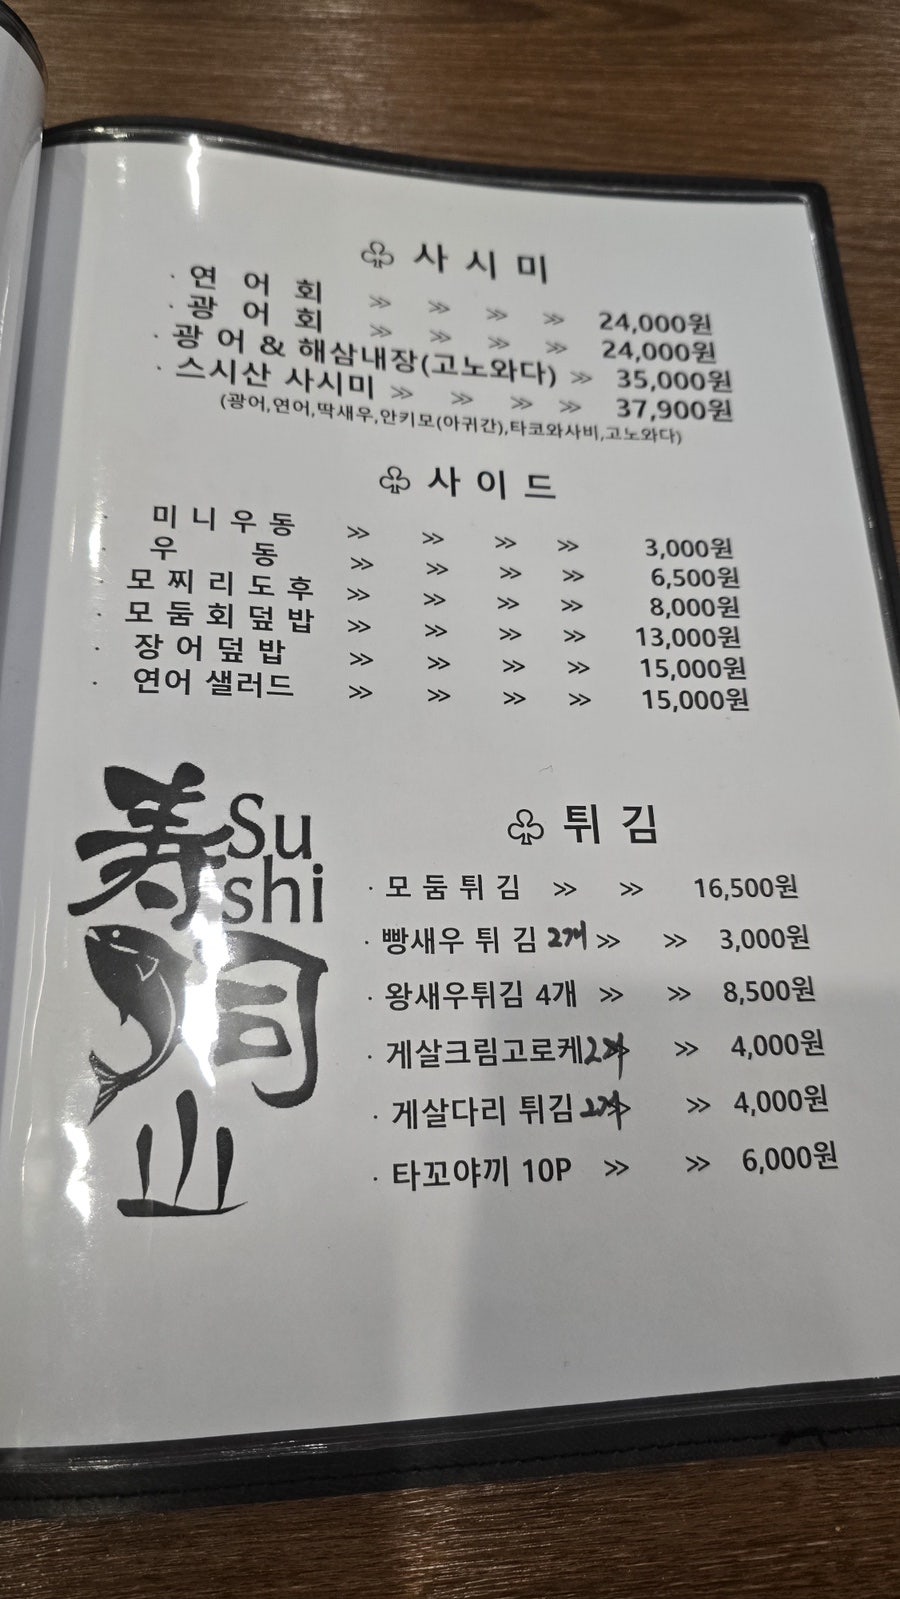 ♧ 사 시 미
· 연 어 회 >> >> >> >> 24,000원
· 광 어 회 >> >> >> >> 24,000원
· 광 어 & 해삼내장(고노와다) >> 35,000원
· 스시산 사시미 >> >> >> >> 37,900원
(광어,연어,딱새우,안키모(아귀간),타코와사비,고노와다)
♧ 사 이 드
· 미 니 우 동 >> >> >> >> 3,000원
· 우 동 >> >> >> >> 6,500원
· 모 찌 리 도 후 >> >> >> >> 8,000원
· 모 둠 회 덮 밥 >> >> >> >> 13,000원
· 장 어 덮 밥 >> >> >> >> 15,000원
· 연어 샐러드 >> >> >> >> 15,000원
寿司山
Su
shi
♧ 튀 김
· 모 둠 튀 김 >> >> 16,500원
· 빵새우 튀 김 2개 >> >> 3,000원
· 왕새우튀김 4개 >> >> 8,500원
· 게살크림고로케 2개 >> >> 4,000원
· 게살다리 튀김 2개 >> >> 4,000원
· 타꼬야끼 10P >> >> 6,000원